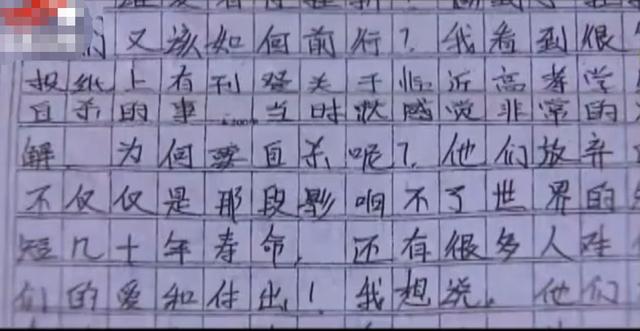 们又该如何前行？我看到很
报纸上有刊登关于临近高考学
自杀的事，当时我感觉非常的
解。为何要自杀呢？他们放弃
不仅仅是那段影响不了世界的
短几十年寿命，还有很多人对
们的爱和付出！我想说，他们